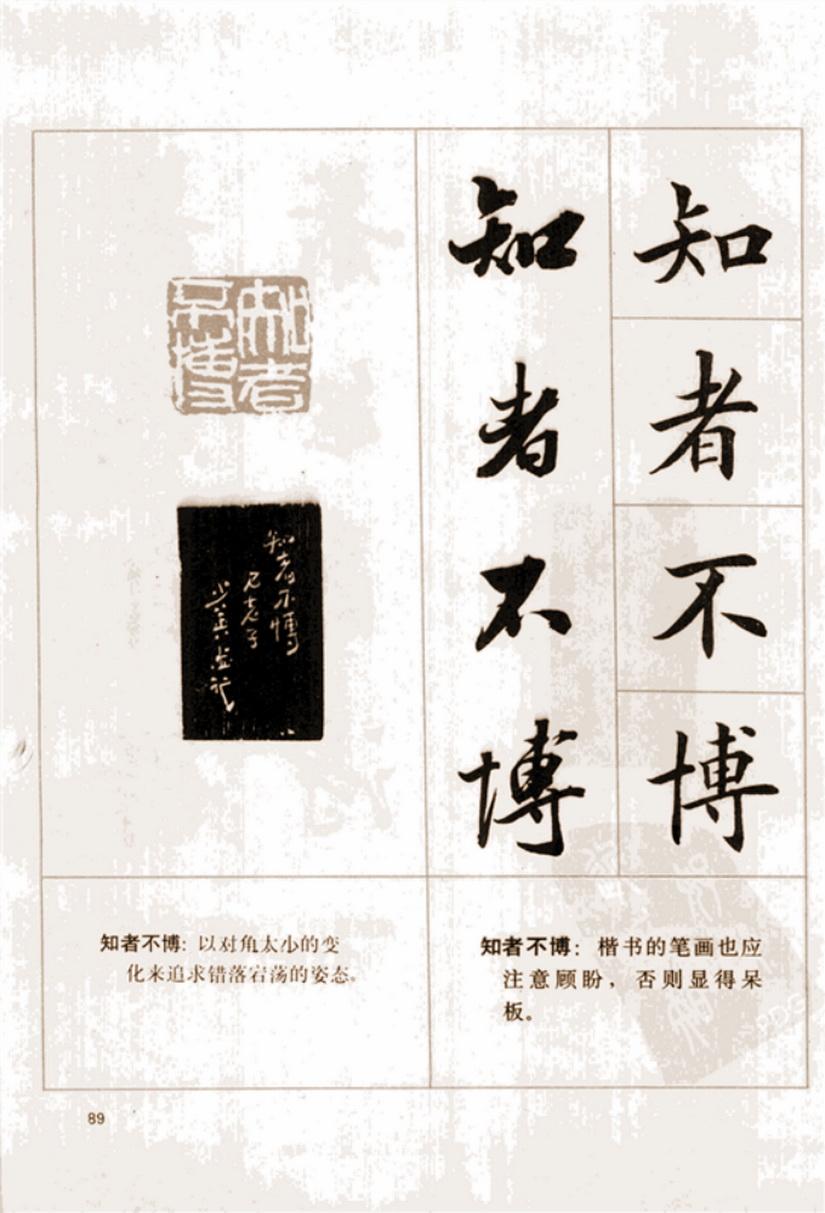 知者不博
知者不博
知者不博
知者不博
见老子
知者不博：楷书的笔画也应
注意顾盼，否则显得呆
板。
知者不博：以对角大小的变
化来追求错落宕荡的姿态。
89